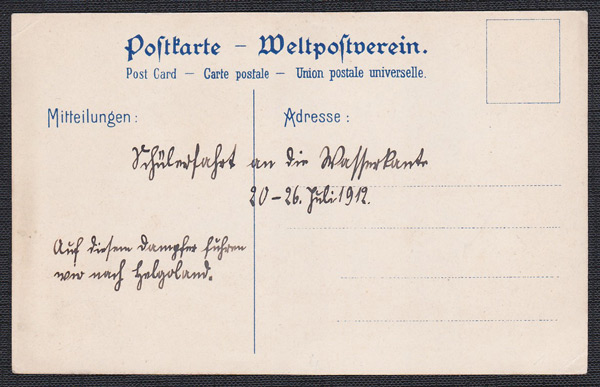 Postkarte – Weltpostverein.
Post Card – Carte postale – Union postale universelle.
Mitteilungen:
Adresse:
Schülerfahrt an die Wasserkante
20–26. Juli 1912.
Auf diesem Dampfer fuhren
wir nach Helgoland.